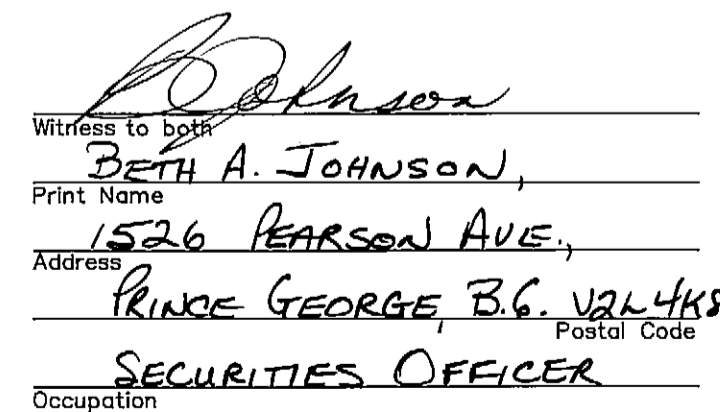 B Johnson
Witness to both
BETH A. JOHNSON,
Print Name
1526 PEARSON AVE.,
Address
PRINCE GEORGE, B.C. V2L 4K8
Postal Code
SECURITIES OFFICER
Occupation